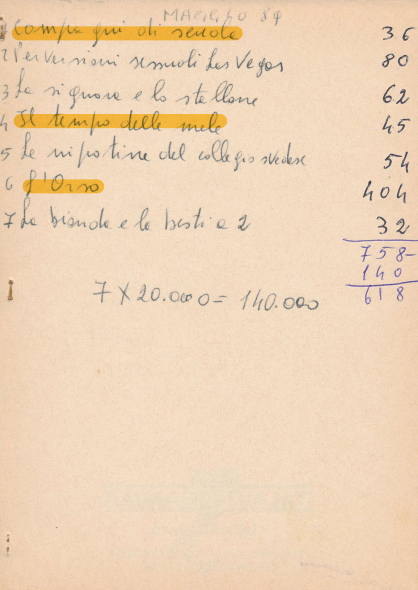 MAGGIO 89
1 Compagni di scuola 36
2 Perversioni sessuali Las Vegas 80
3 La signora e lo stallone 62
4 Il tempo delle mele 45
5 Le nipotine del collegio svedese 54
6 L'Orso 404
7 La bionda e la bestia 2 32
758-
140
618
7 X 20.000 = 140.000